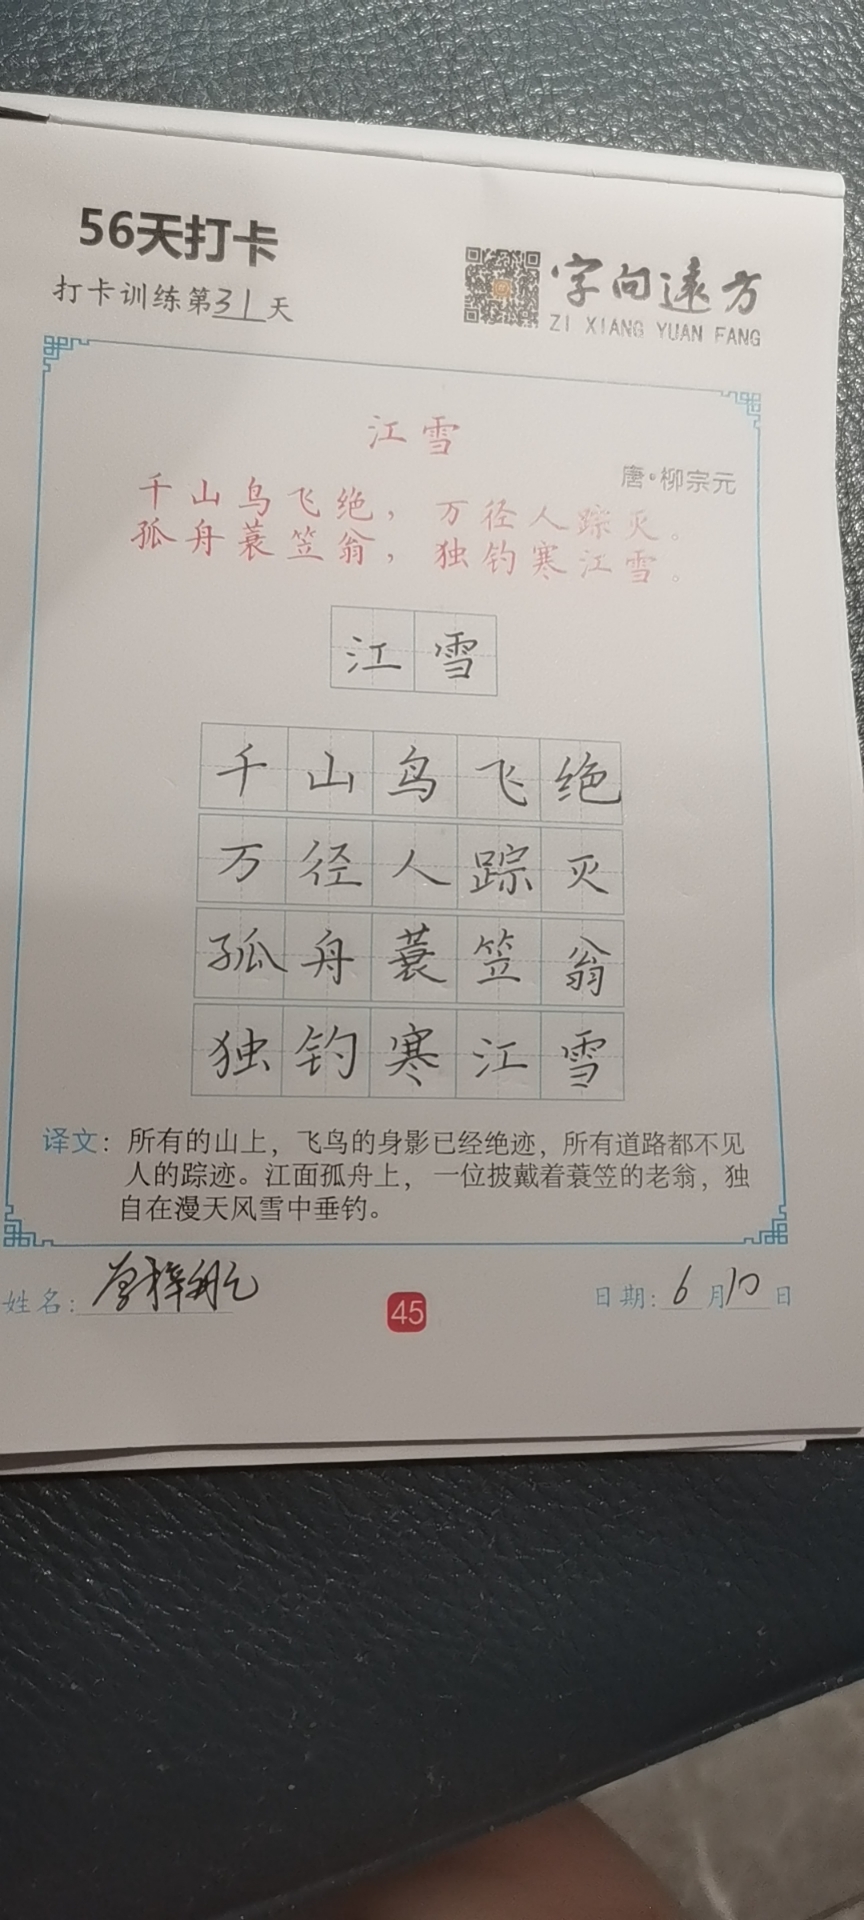 56天打卡
打卡训练第31天
字向遠方
ZI XIANG YUAN FANG
江雪
唐·柳宗元
千山鸟飞绝，万径人踪灭。
孤舟蓑笠翁，独钓寒江雪。
江雪
千山鸟飞绝
万径人踪灭
孤舟蓑笠翁
独钓寒江雪
译文：所有的山上，飞鸟的身影已经绝迹，所有道路都不见
人的踪迹。江面孤舟上，一位披戴着蓑笠的老翁，独
自在漫天风雪中垂钓。
姓名：
45
日期：6月10日